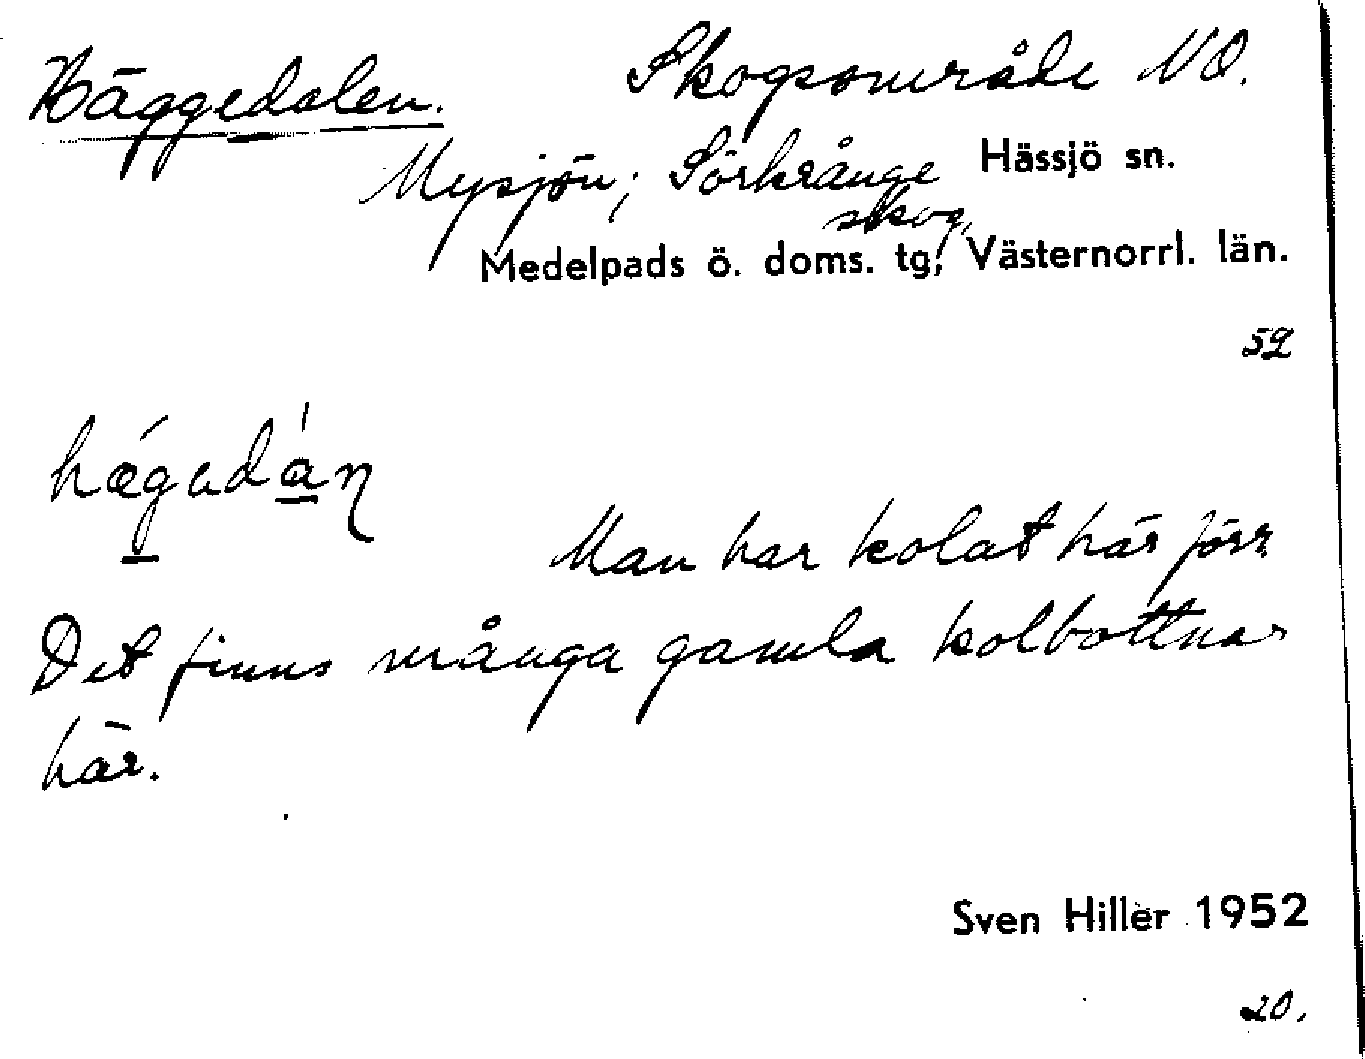 Häggedalen. Skogsområde NO.
Mysjön; Sörkrånge Hässjö sn.
skog,
Medelpads ö. doms. tg, Västernorrl. län.
52
hǽgadán
Man har kolat här förr.
Det finns många gamla kolbottnar
här.
Sven Hiller 1952
20.